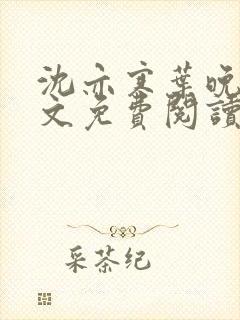 沈亦寒葉晚
文免費閱讀
采茶纪